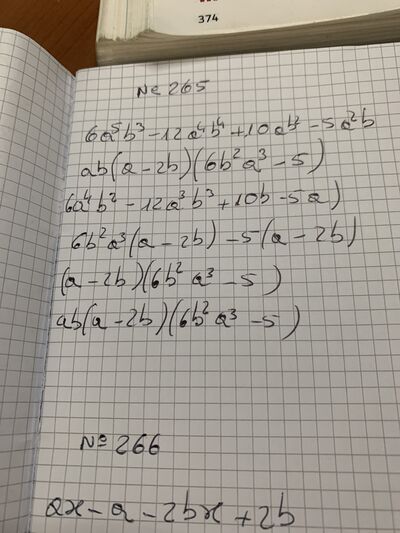 374
№ 265
6a⁵b³ - 12a⁴b⁴ + 10ab² - 5a²b
ab(a - 2b)(6b²a³ - 5)
6a⁴b² - 12a³b³ + 10b - 5a)
6b²a³(a - 2b) - 5(a - 2b)
(a - 2b)(6b²a³ - 5)
ab(a - 2b)(6b²a³ - 5)
№ 266
ax - a - 2bx + 2b